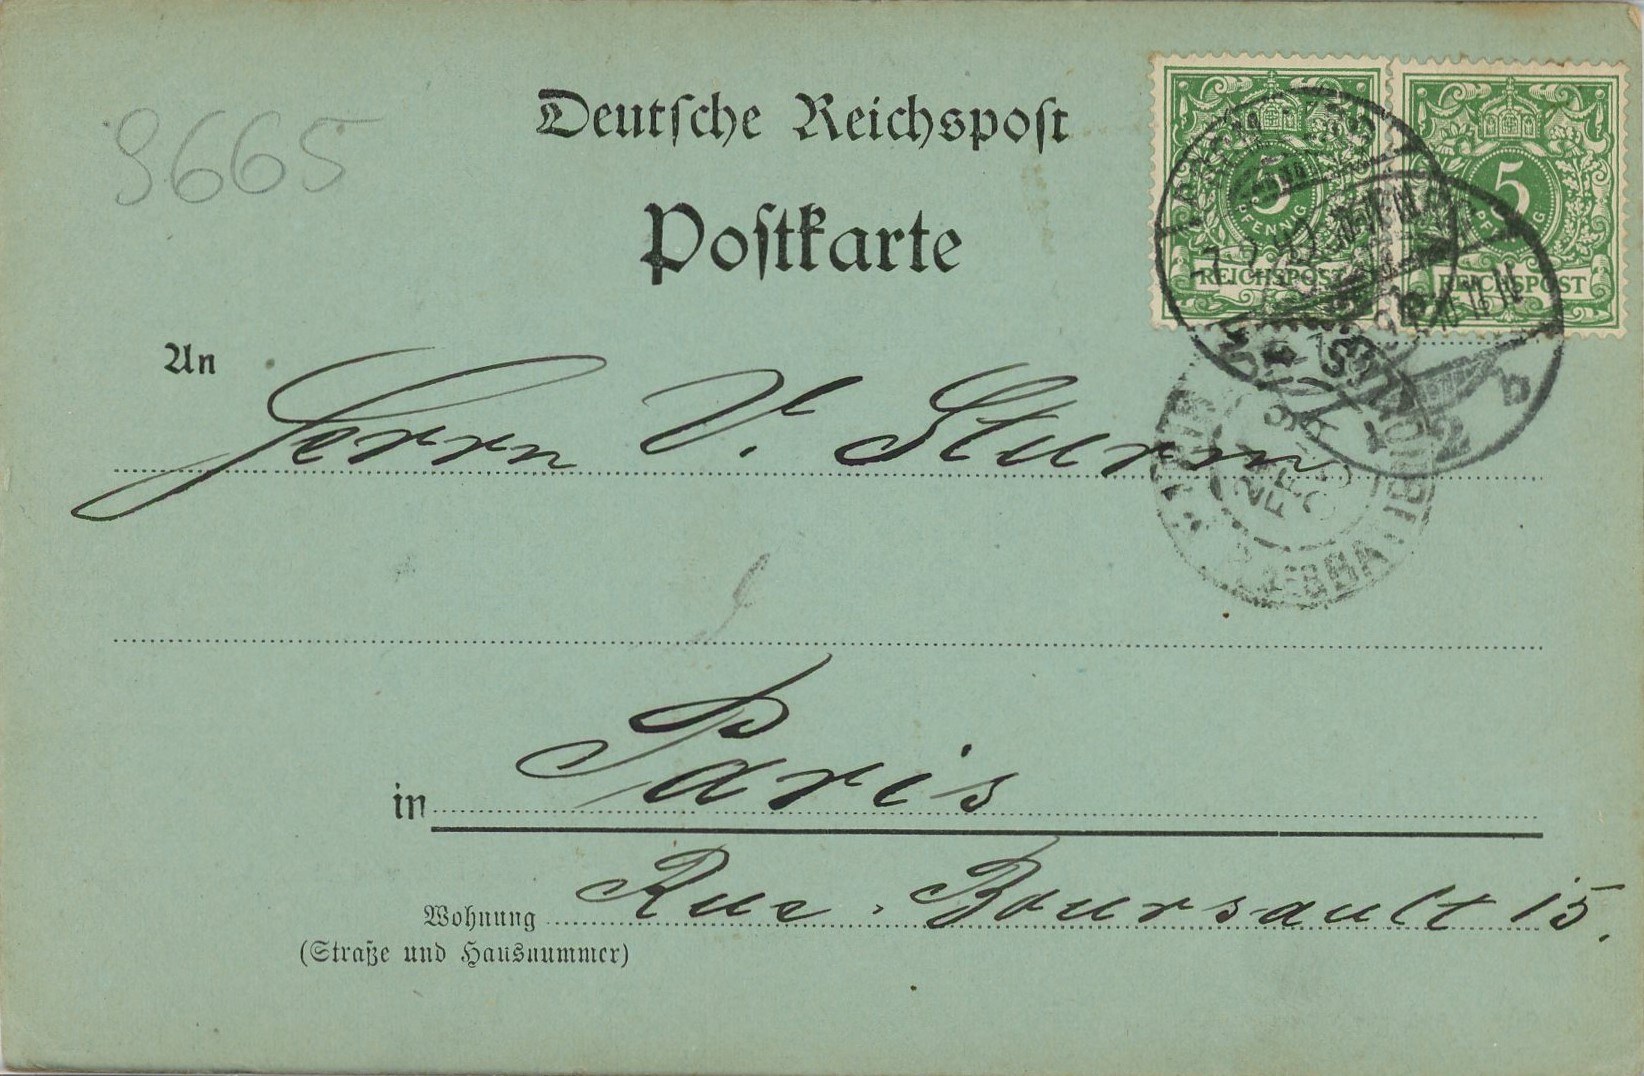 9665
Deutsche Reichspost
Postkarte
5
PFENNIG
REICHSPOST
5
PFENNIG
REICHSPOST
An
Herrn V. Sturm
in Paris
Wohnung Rue Boursault 15.
(Straße und Hausnummer)